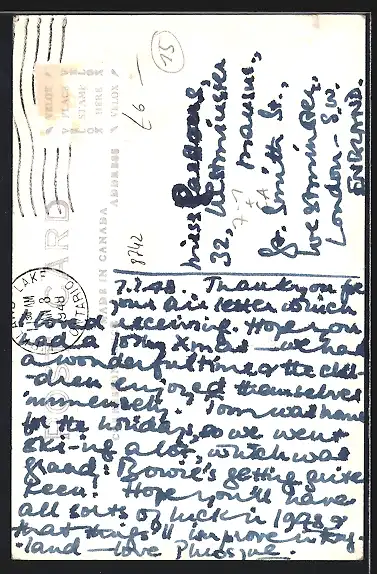 15
£6 -
8742
VELOX
PLACE
STAMP
HERE
VELOX
POST CARD
MADE IN CANADA
ADDRESS
LAKE
ONTARIO
Miss
32, Westminster
Mansions,
Gt. Smith St.,
Westminster,
London - S.W.
ENGLAND.
7.1.48. Thank you for
your air letter which
I loved receiving. Hope you
had a jolly Xmas — we had
a wonderful time & the chil-
dren enjoyed themselves
immensely. Tom was home
for the holidays, so we went
ski-ing a lot, which was
grand. getting quite
keen. Hope you'll have
all sorts of luck in 1948 &
that things'll improve in Eng-
land — love